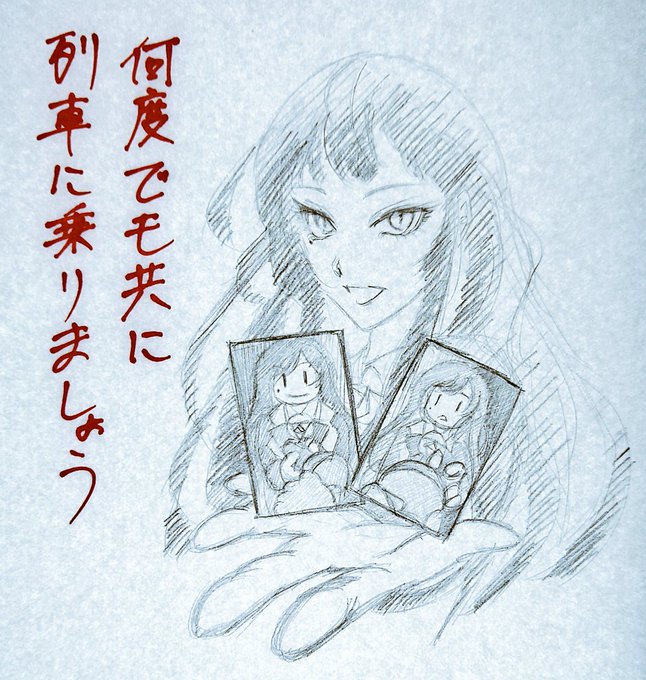 何度でも共に
列車に乗りましょう